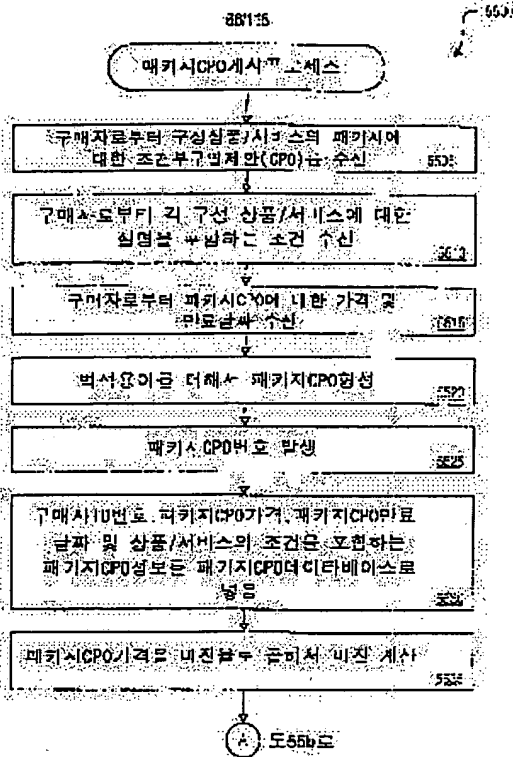 패키지CPO게시프로세스
구매자로부터 구성상품/서비스의 패키지에
대한 조건부구매제안(CPO)을 수신
구매자로부터 각 구성 상품/서비스에 대한
설명을 포함하는 조건 수신
5510
구매자로부터 패키지CPO에 대한 가격 및
만료날짜 수신
패키지CPO형성
5520
패키지CPO번호 발생
5525
구매자ID번호, 패키지CPO가격, 패키지CPO만료
날짜 및 상품/서비스의 조건을 포함하는
패키지CPO정보를 패키지CPO데이타베이스로
넣음
패키지CPO가격을 곱해서 계산
5535
A 도55b로